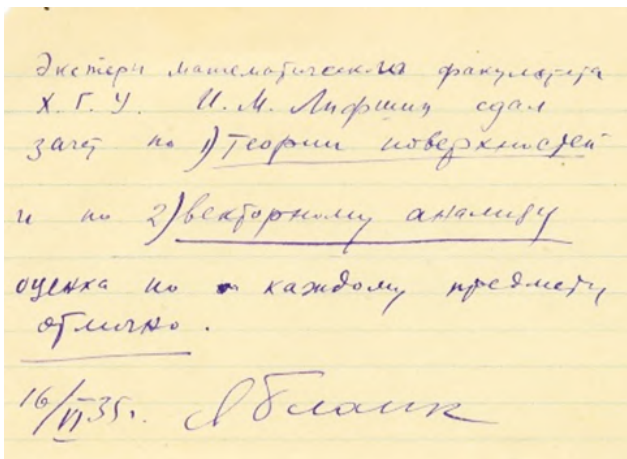 Экстерн математического факультета
Х. Г. У. И. М. Лифшиц сдал
зачет по 1) теории поверхностей
и по 2) векторному анализу
оценка по каждому предмету
отлично.
16/VI 35г. Я Бланк